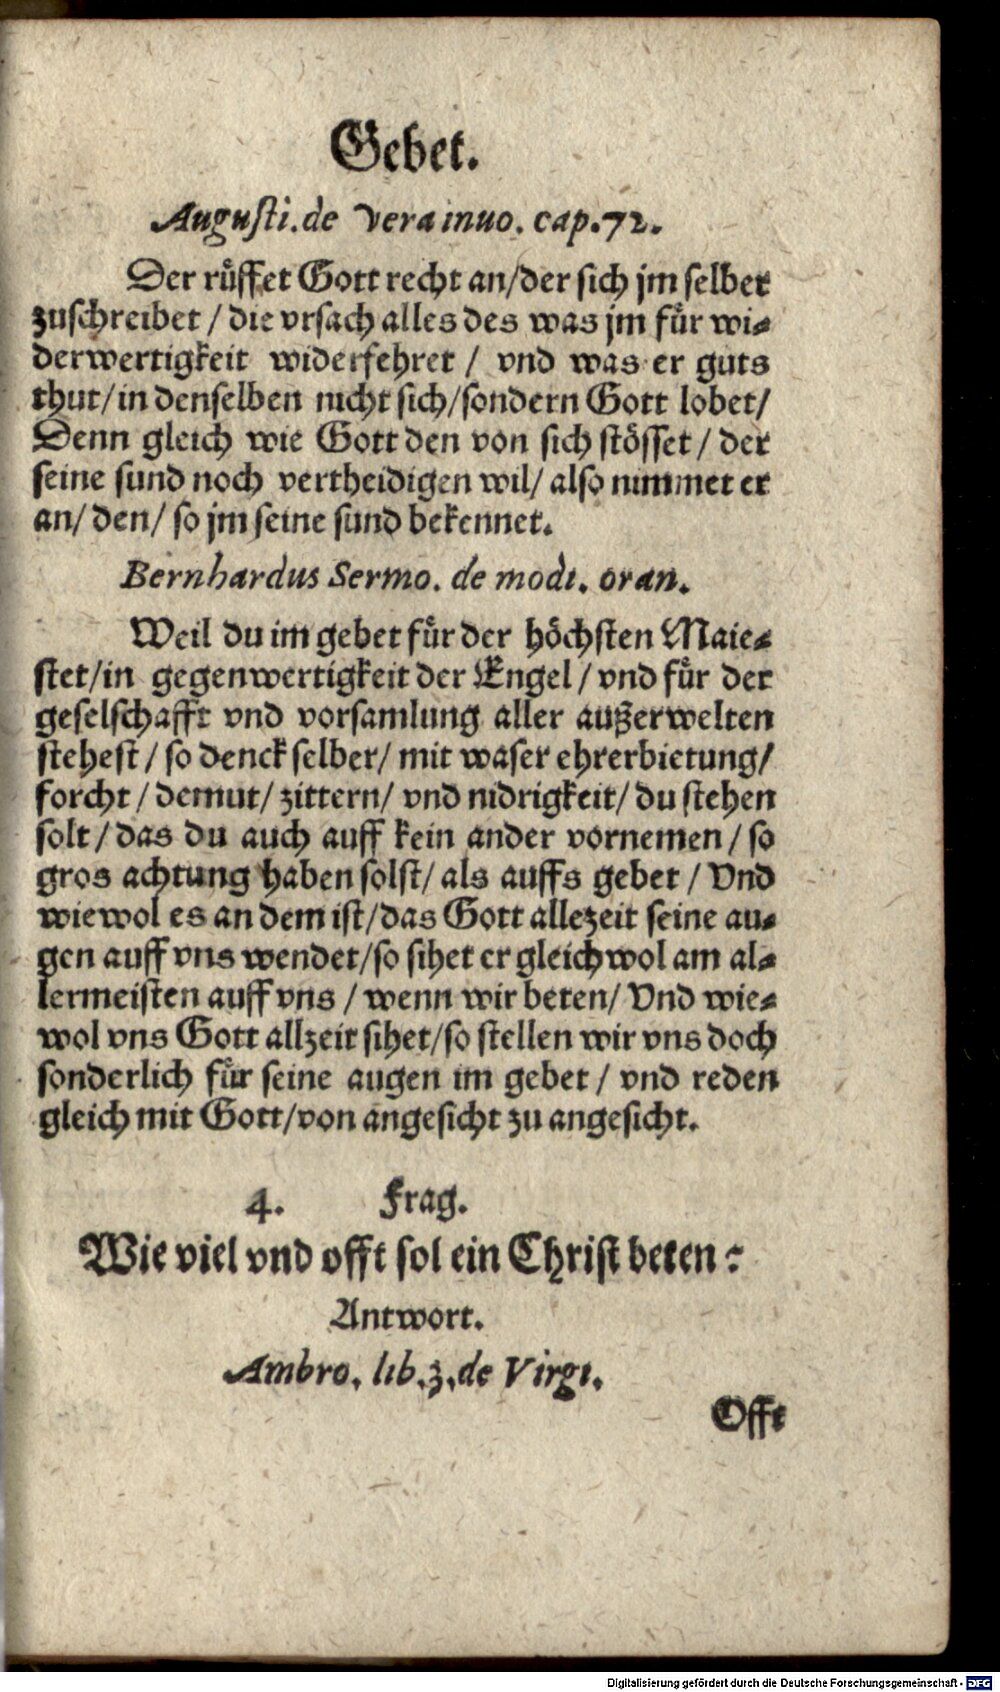 Gebet.
Augusti. de vera inuo. cap. 72.
Der rüffet Gott recht an/der sich jm selber
zuschreibet / die vrsach alles des was jm für wi-
derwertigkeit widerfehret / vnd was er guts
thut/in denselben nicht sich/sondern Gott lobet/
Denn gleich wie Gott den von sich stösset / der
seine sund noch vertheidigen wil/ also nimmet er
an/ den/ so jm seine sund bekennet.
Bernhardus Sermo. de modi. oran.
Weil du im gebet für der höchsten Maie-
stet/in gegenwertigkeit der Engel / vnd für der
geselschafft vnd vorsamlung aller außerwelten
stehest / so denck selber/ mit waser ehrerbietung/
forcht / demut/ zittern/ vnd nidrigkeit/ du stehen
solt / das du auch auff kein ander vornemen / so
gros achtung haben solst/ als auffs gebet / Vnd
wiewol es an dem ist/das Gott allezeit seine au-
gen auff vns wendet/so sihet er gleichwol am al-
lermeisten auff vns / wenn wir beten/ Vnd wie-
wol vns Gott allzeit sihet/so stellen wir vns doch
sonderlich für seine augen im gebet / vnd reden
gleich mit Gott/von angesicht zu angesicht.
4. Frag.
Wie viel vnd offt sol ein Christ beten?
Antwort.
Ambro. lib. 3. de Virgi.
Offt
Digitalisierung gefördert durch die Deutsche Forschungsgemeinschaft - DFG